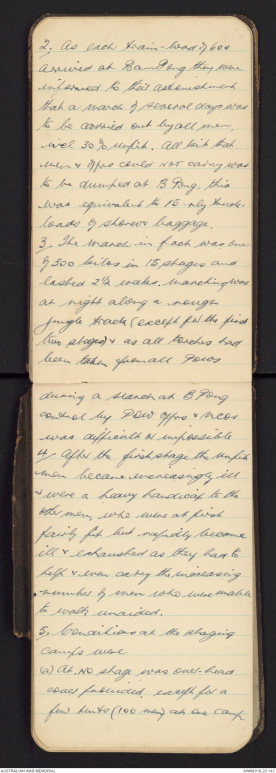 2. As each train-load of 600
arrived at Bam Pong they were
informed to their astonishment
that a march of several days was
to be carried out by all men,
incl 30% unfit. All kit that
men & offrs could not carry was
to be dumped at B Pong, this
was equivalent to 15 rly truck-
loads of stores & baggage.
3. The march in fact was one
of 300 kilos in 15 stages and
lasted 2½ weeks. Marching was
at night along a rough
jungle track (except for the first
two stages) & as all torches had
been taken from all POWs
during a search at B Pong
control by POW offrs & NCOs
was difficult or impossible
4. After the first stage the unfit
men became increasingly ill
& were a heavy handicap to the
other men, who were at first
fairly fit but rapidly became
ill & exhausted as they had to
help & even carry the increasing
number of men who were unable
to walk unaided.
5. Conditions at the staging
camps were
(a) At no stage was over-head
cover provided, except for a
few tents (100 men) at one camp
AUSTRALIAN WAR MEMORIAL